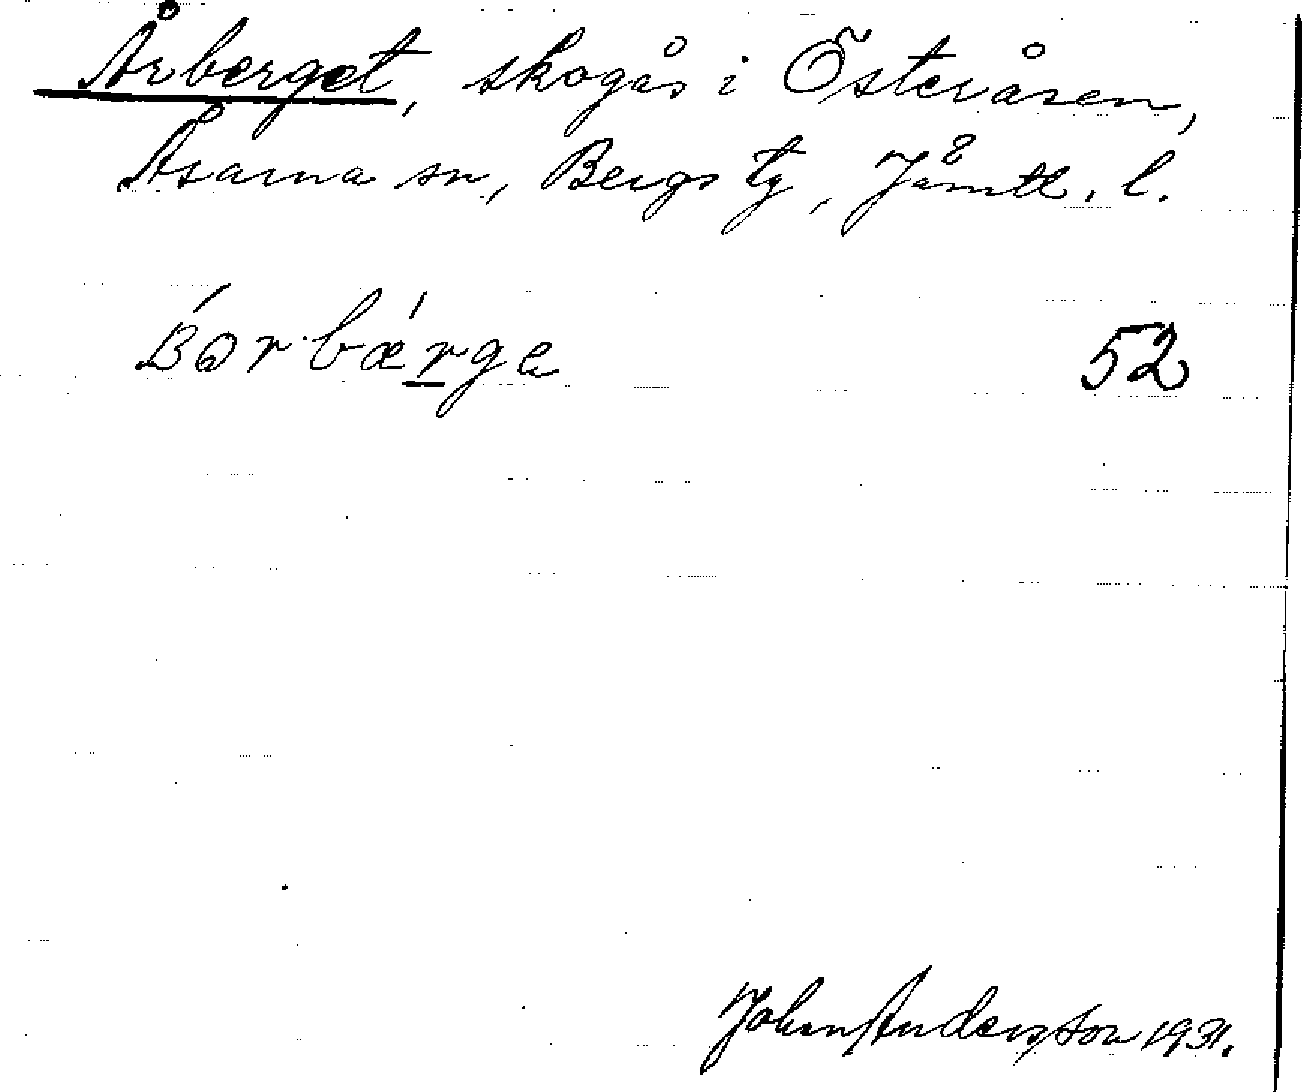 Årberget, skogås i Österåsen,
Åsarna sn, Bergs tg, Jämtl. l.
52
John Andersson 1931.